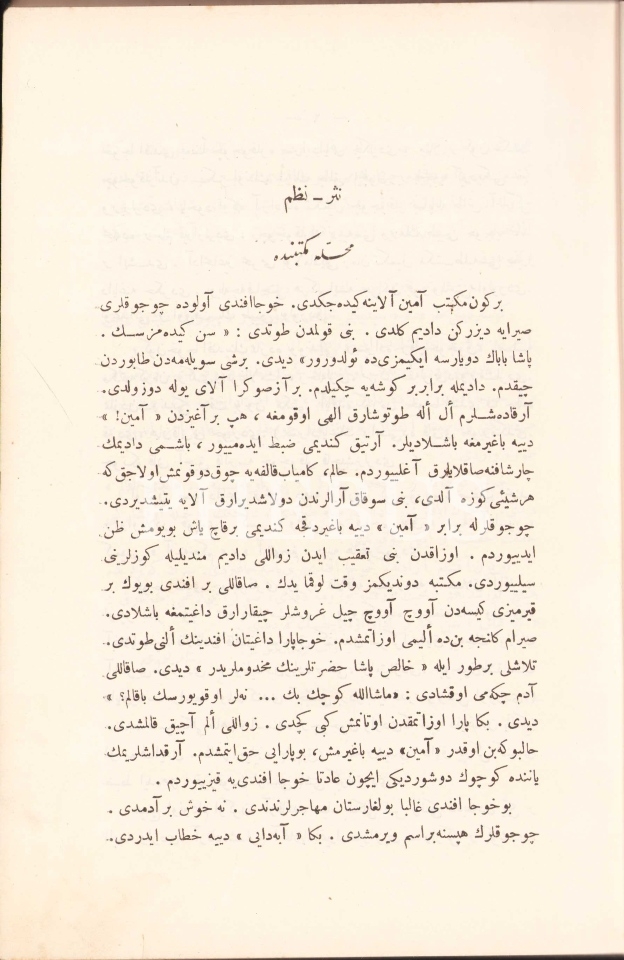 نثر ـ نظم
محله مكتبنده
بركون مكتب آمين آلاينه كيده جكدى. خوجا افندى آولوده چوجوقلرى
صيرايه ديزركن داديم كلدى . بنى قولمدن طوتدى : « سن كيده مزسك .
پاشا باباك دويارسه ايكيمزى ده ئولدورور» ديدى. برشى سويله مه دن طابوردن
چيقدم. داديمله برابر بر كوشه يه چكيلدم. بر آز صوكرا آلاى يوله دوزولدى.
آرقاده شلرم أل أله طوتوشارق الهى اوقومغه ، هپ بر آغيزدن « آمين! »
دييه باغيرمغه باشلاديلر. آرتيق كنديمى ضبط ايده مييور ، باشمى داديمك
چارشافنه صاقلايارق آغلييوردم. حالم، كامياب قالفه يه چوق دوقونمش اولاجق كه
هر شيئى كوزه آلدى، بنى سوقاق آرالرندن دولاشديرارق آلايه يتيشديردى.
چوجوقلرله برابر « آمين » دييه باغيردقجه كنديمى برقاچ ياش بويومش ظن
ايدييوردم . اوزاقدن بنى تعقيب ايدن زواللى داديم منديليله كوزلرينى
سيلييوردى. مكتبه دونديكمز وقت لوقما يدك . صاقاللى بر افندى بويوك بر
قيرميزى كيسه دن آووچ آووچ چيل غروشلر چيقارارق داغيتمغه باشلادى.
صيرام كلنجه بن ده أليمى اوزاتمشدم. خوجا پارا داغيتان افندينك ألنى طوتدى.
تلاشلى بر طور ايله « خالص پاشا حضرتلرينك مخدوملريدر » ديدى. صاقاللى
آدم چكه مى اوقشادى : «ماشاالله كوچك بك ... نه لر اوقويورسك باقالم؟ »
ديدى . بكا پارا اوزاتمقدن اوتانمش كبى كچدى . زواللى ألم آچيق قالمشدى.
حالبوكه بن او قدر «آمين» دييه باغيرمش، بو پارايى حق ايتمشدم. آرقداشلريمك
ياننده كوچوك دوشورديكى ايچون عادتا خوجا افندى يه قيزييوردم .
بو خوجا افندى غالبا بولغارستان مهاجرلرندندى . نه خوش بر آدمدى .
چوجوقلرك هپسنه بر اسم ويرمشدى . بكا « آبه دايى » دييه خطاب ايدردى.